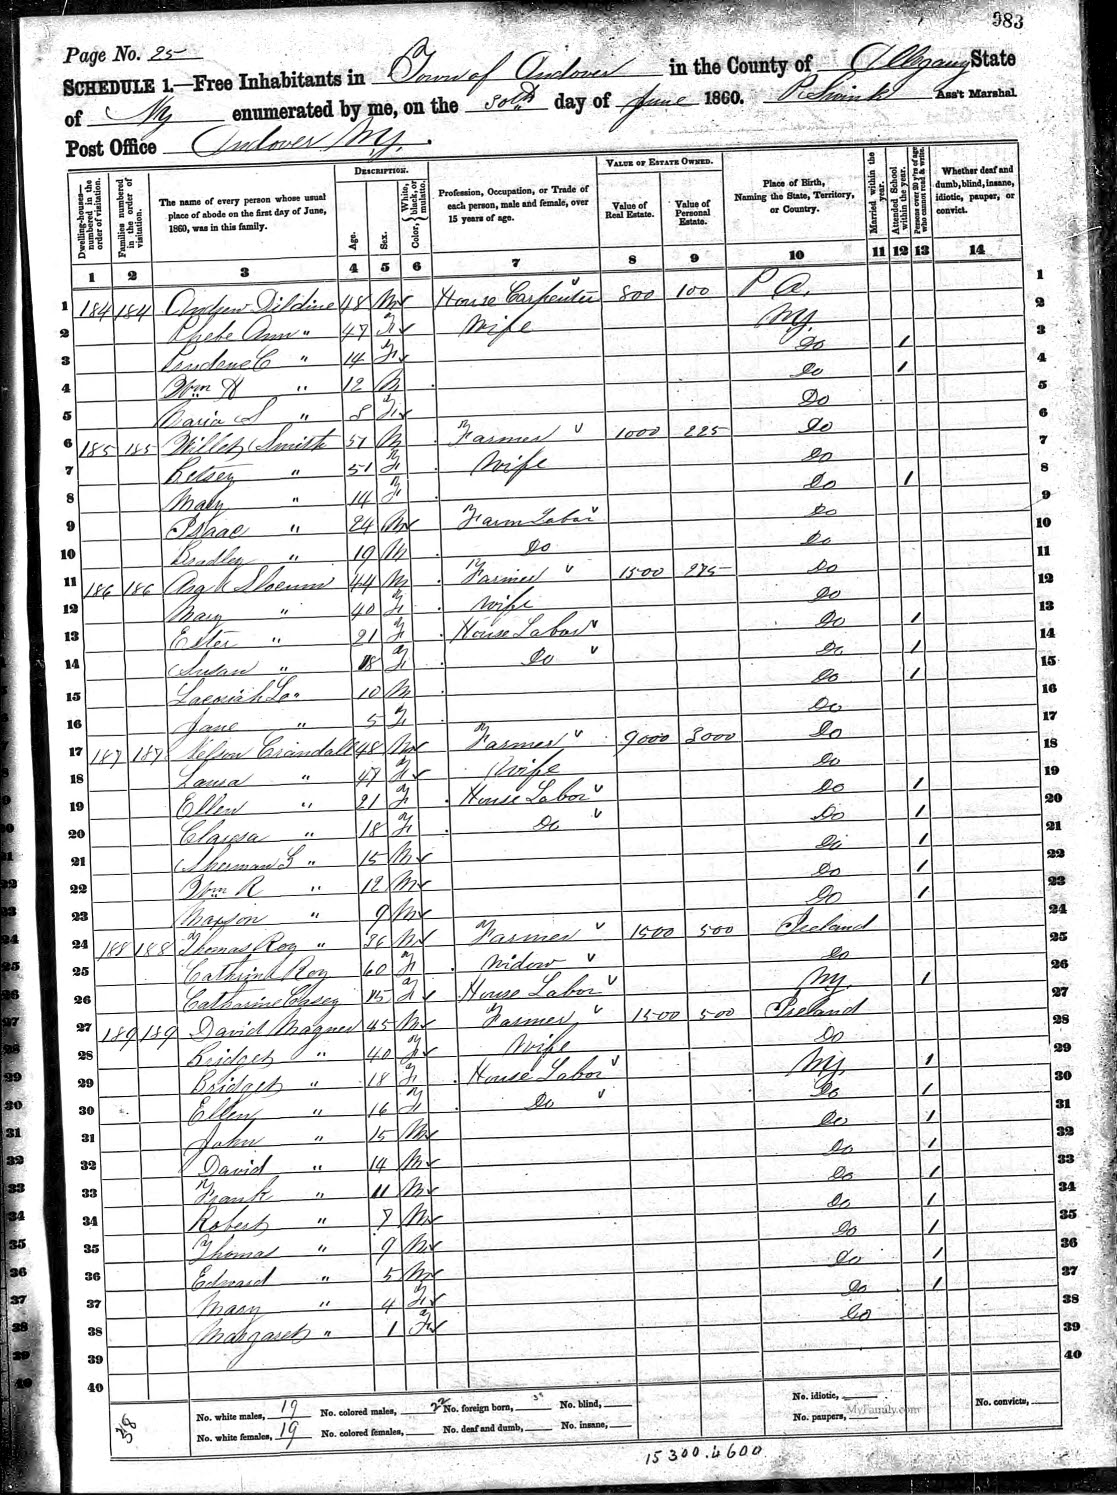 383
Page No. 25
SCHEDULE 1.—Free Inhabitants in Town of Andover in the County of Allegany State
of NY enumerated by me, on the 30th day of June 1860. Ass't Marshal.
Post Office Andover NY.
Dwelling-houses— numbered in the order of visitation.
Families numbered in the order of visitation.
The name of every person whose usual place of abode on the first day of June, 1860, was in this family.
DESCRIPTION.
Age.
Sex.
Color, { White, black, or mulatto.
Profession, Occupation, or Trade of each person, male and female, over 15 years of age.
VALUE OF ESTATE OWNED.
Value of Real Estate.
Value of Personal Estate.
Place of Birth, Naming the State, Territory, or Country.
Married within the year.
Attended School within the year.
Persons over 20 y'rs of age who cannot read & write.
Whether deaf and dumb, blind, insane, idiotic, pauper, or convict.
1 2 3 4 5 6 7 8 9 10 11 12 13 14
1 184 184 Andrew Dildine 48 M House Carpenter 800 100 Pa. 1
2 Phebe Ann " 47 F Wife NY. 2
3 Prudence C " 14 F Do / 3
4 Wm H " 12 M Do / 4
5 Maria S " 8 F Do 5
6 185 185 Smith 51 M Farmer 1000 225 Do 6
7 Betsey " 51 F Wife Do 7
8 Mary " 14 F Do / 8
9 Isaac " 24 M Farm Labor Do 9
10 Bradley " 19 M Do Do 10
11 186 186 Asa Slocum 44 M Farmer 1500 275 Do 11
12 Mary " 40 F Wife Do 12
13 Ester " 21 F House Labor Do / 13
14 Susan " 18 F Do Do / 14
15 " 10 M Do / 15
16 Jane " 5 F Do 16
17 187 187 Nelson Crandall 48 M Farmer 9000 3000 Do 17
18 Laura " 47 F Wife Do 18
19 Ellen " 21 F House Labor Do / 19
20 Clarisa " 18 F Do Do / 20
21 Sherman L " 15 M Do / 21
22 Wm R " 12 M Do / 22
23 Maxson " 9 M Do / 23
24 188 188 Thomas Roy " 36 M Farmer 1500 500 Ireland 24
25 Cathrine Roy 60 F Widow Do 25
26 Catharine Casey 15 F House Labor NY. / 26
27 189 189 David Magner 45 M Farmer 1500 500 Ireland 27
28 Bridget " 40 F Wife Do 28
29 Bridget " 18 F House Labor NY. / 29
30 Ellen " 16 F Do Do / 30
31 John " 15 M Do / 31
32 David " 14 M Do / 32
33 Frank " 11 M Do / 33
34 Robert " 7 M Do / 34
35 Thomas " 9 M Do / 35
36 Edward " 5 M Do / 36
37 Mary " 4 F Do / 37
38 Margaret " 1 F Do 38
39 39
40 40
38 No. white males, 19 No. colored males, No. foreign born, No. blind, No. idiotic, No. convicts,
No. white females, 19 No. colored females, No. deaf and dumb, No. insane, No. paupers,
MyFamily.com
15300. 4600